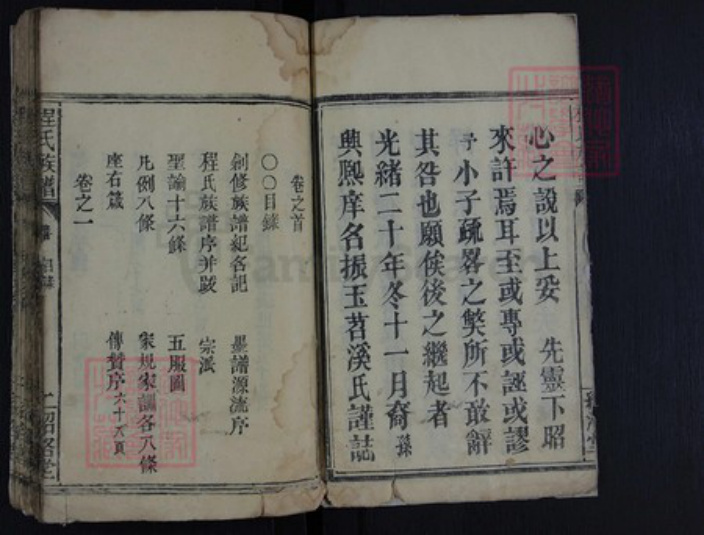 心之說以上妥 先靈下昭
來許焉耳至或專或誣或謬
予小子疏畧之獘所不敢辭
其咎也願俟後之繼起者
光緒二十年冬十一月裔孫
興熈庠名振玉苕溪氏謹誌
卷之首
〇〇目錄
創修族譜紀名記 畢譜源流序
程氏族譜序并跋 宗派
聖諭十六條 五服圖
凡例八條 家規家訓各八條
座右箴 傳贊序六十六頁
卷之一
程氏族譜